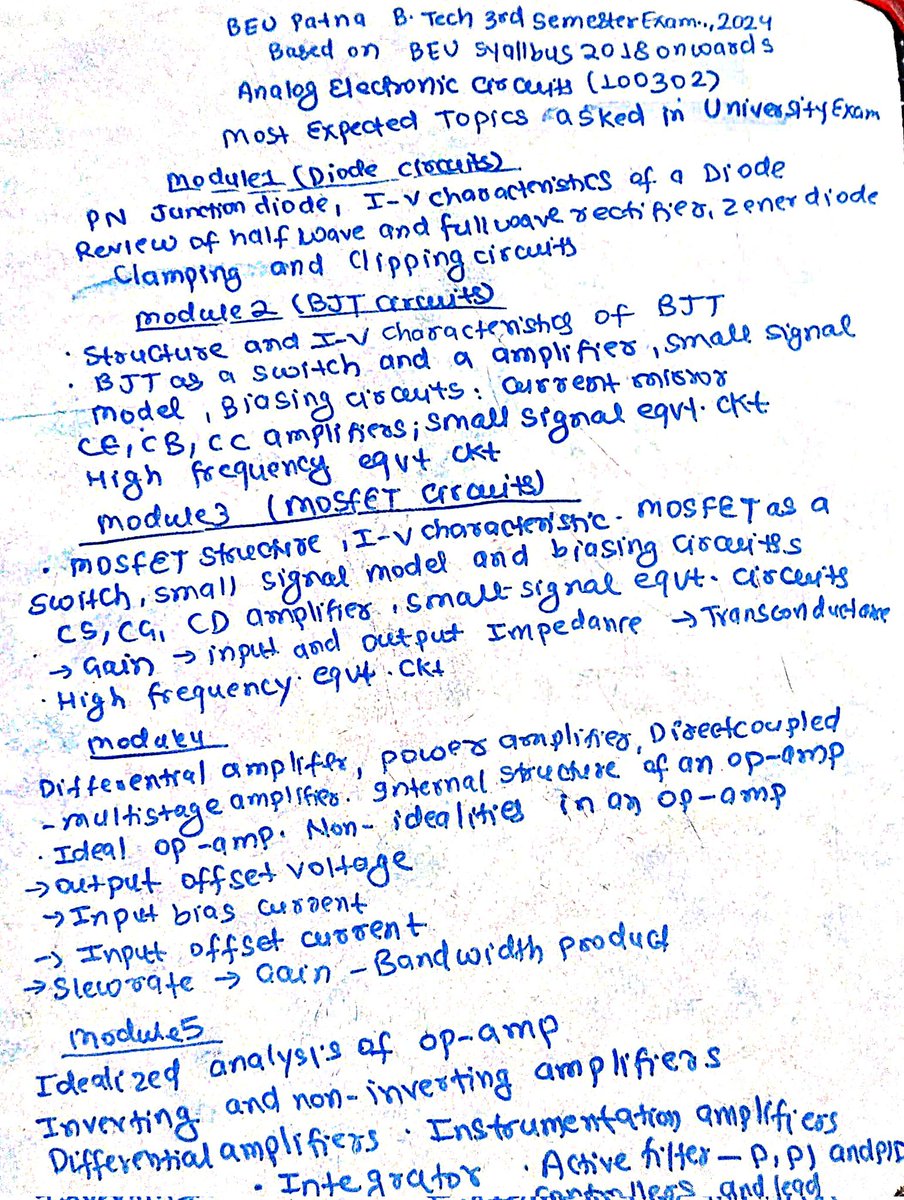 BEU Patna B.Tech 3rd Semester Exam.., 2024
Based on BEU Syallibus 2018 onwards
Analog Electronic Circuits (100302)
Most Expected Topics asked in University Exam
Module1 (Diode circuits)
PN Junction diode, I-V characteristics of a Diode
Review of half wave and full wave rectifier, zener diode
Clamping and Clipping circuits
module2 (BJT circuits)
· Structure and I-V characteristics of BJT
· BJT as a switch and a amplifier, small signal
model, Biasing circuits: current mirror
CE, CB, CC amplifiers; small signal eqvt. ckt.
High frequency eqvt ckt
module3 (MOSFET Circuits)
· MOSFET structure, I-V characteristic. MOSFET as a
switch, small signal model and biasing circuits
CS, CG, CD amplifier, small-signal eqvt. circuits
→ Gain → input and output Impedance → Transconductance
· High frequency eqvt. ckt
module4
Differential amplifer, power amplifier, Direct coupled
- multistage amplifier. Internal structure of an op-amp
· Ideal op-amp. Non-idealities in an op-amp
→ output offset voltage
→ Input bias current
→ Input offset current
→ Slewrate → Gain - Bandwidth product
module5
Idealized analysis of op-amp
Inverting and non-inverting amplifiers
Differential amplifiers · Instrumentation amplifiers
· Integrator · Active filter - P, PI and PID
controllers and lead